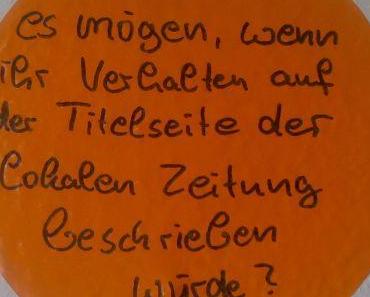 es mögen, wenn
ihr Verhalten auf
der Titelseite der
lokalen Zeitung
beschrieben
würde?